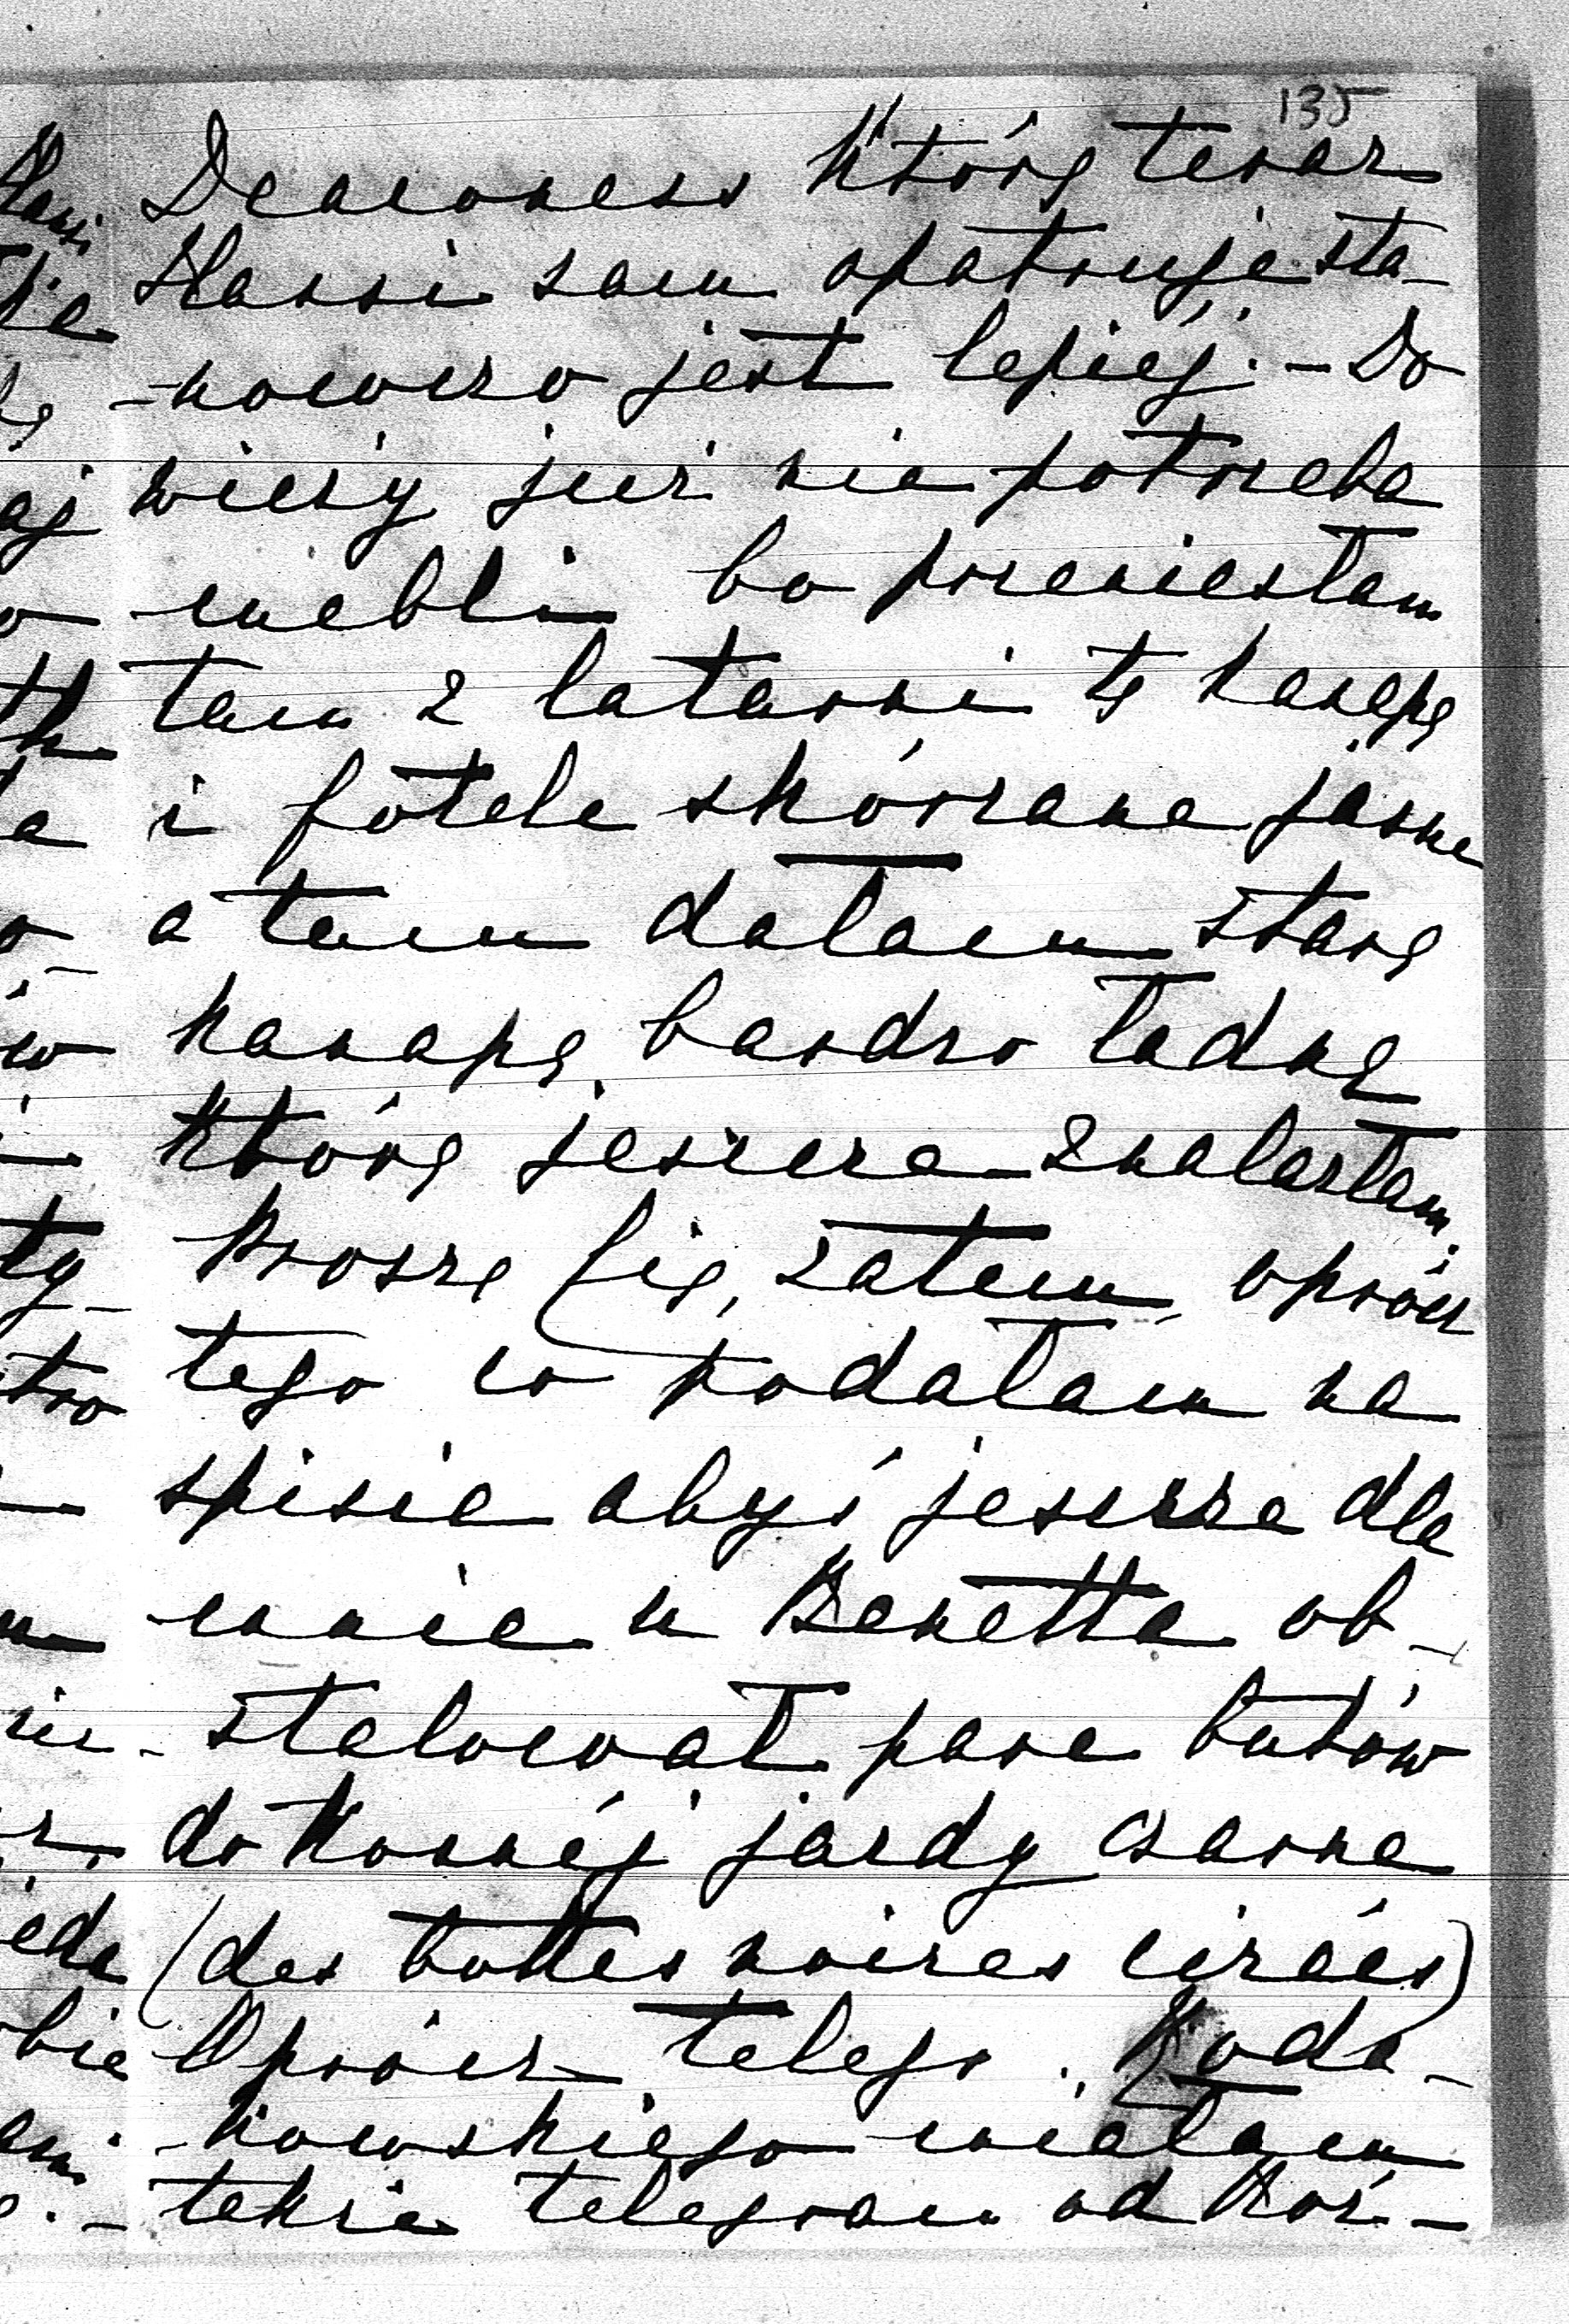 135
Deaconess którą teraz
Harsi sam opatruje sta-
-nowczo jest lepiéj. – Do
wieży już nie potrzeba
mebli bo przeniosłam
tam z latarni tę kanapę
i fotele skórzane jasne
a tam dałam starą
kanapę bardzo ładną
którą jeszcze znalazłam.
Proszę Cię, zatem, oprócz
tego co podałam na
spisie abyś jeszcze dla
mnie u Benetta ob-
stalował parę butów
do konnéj jazdy czarne
(des bottes noires cirées)
Oprócz telegr. Koda-
-kowskiego miałam
także telegram od Roż-